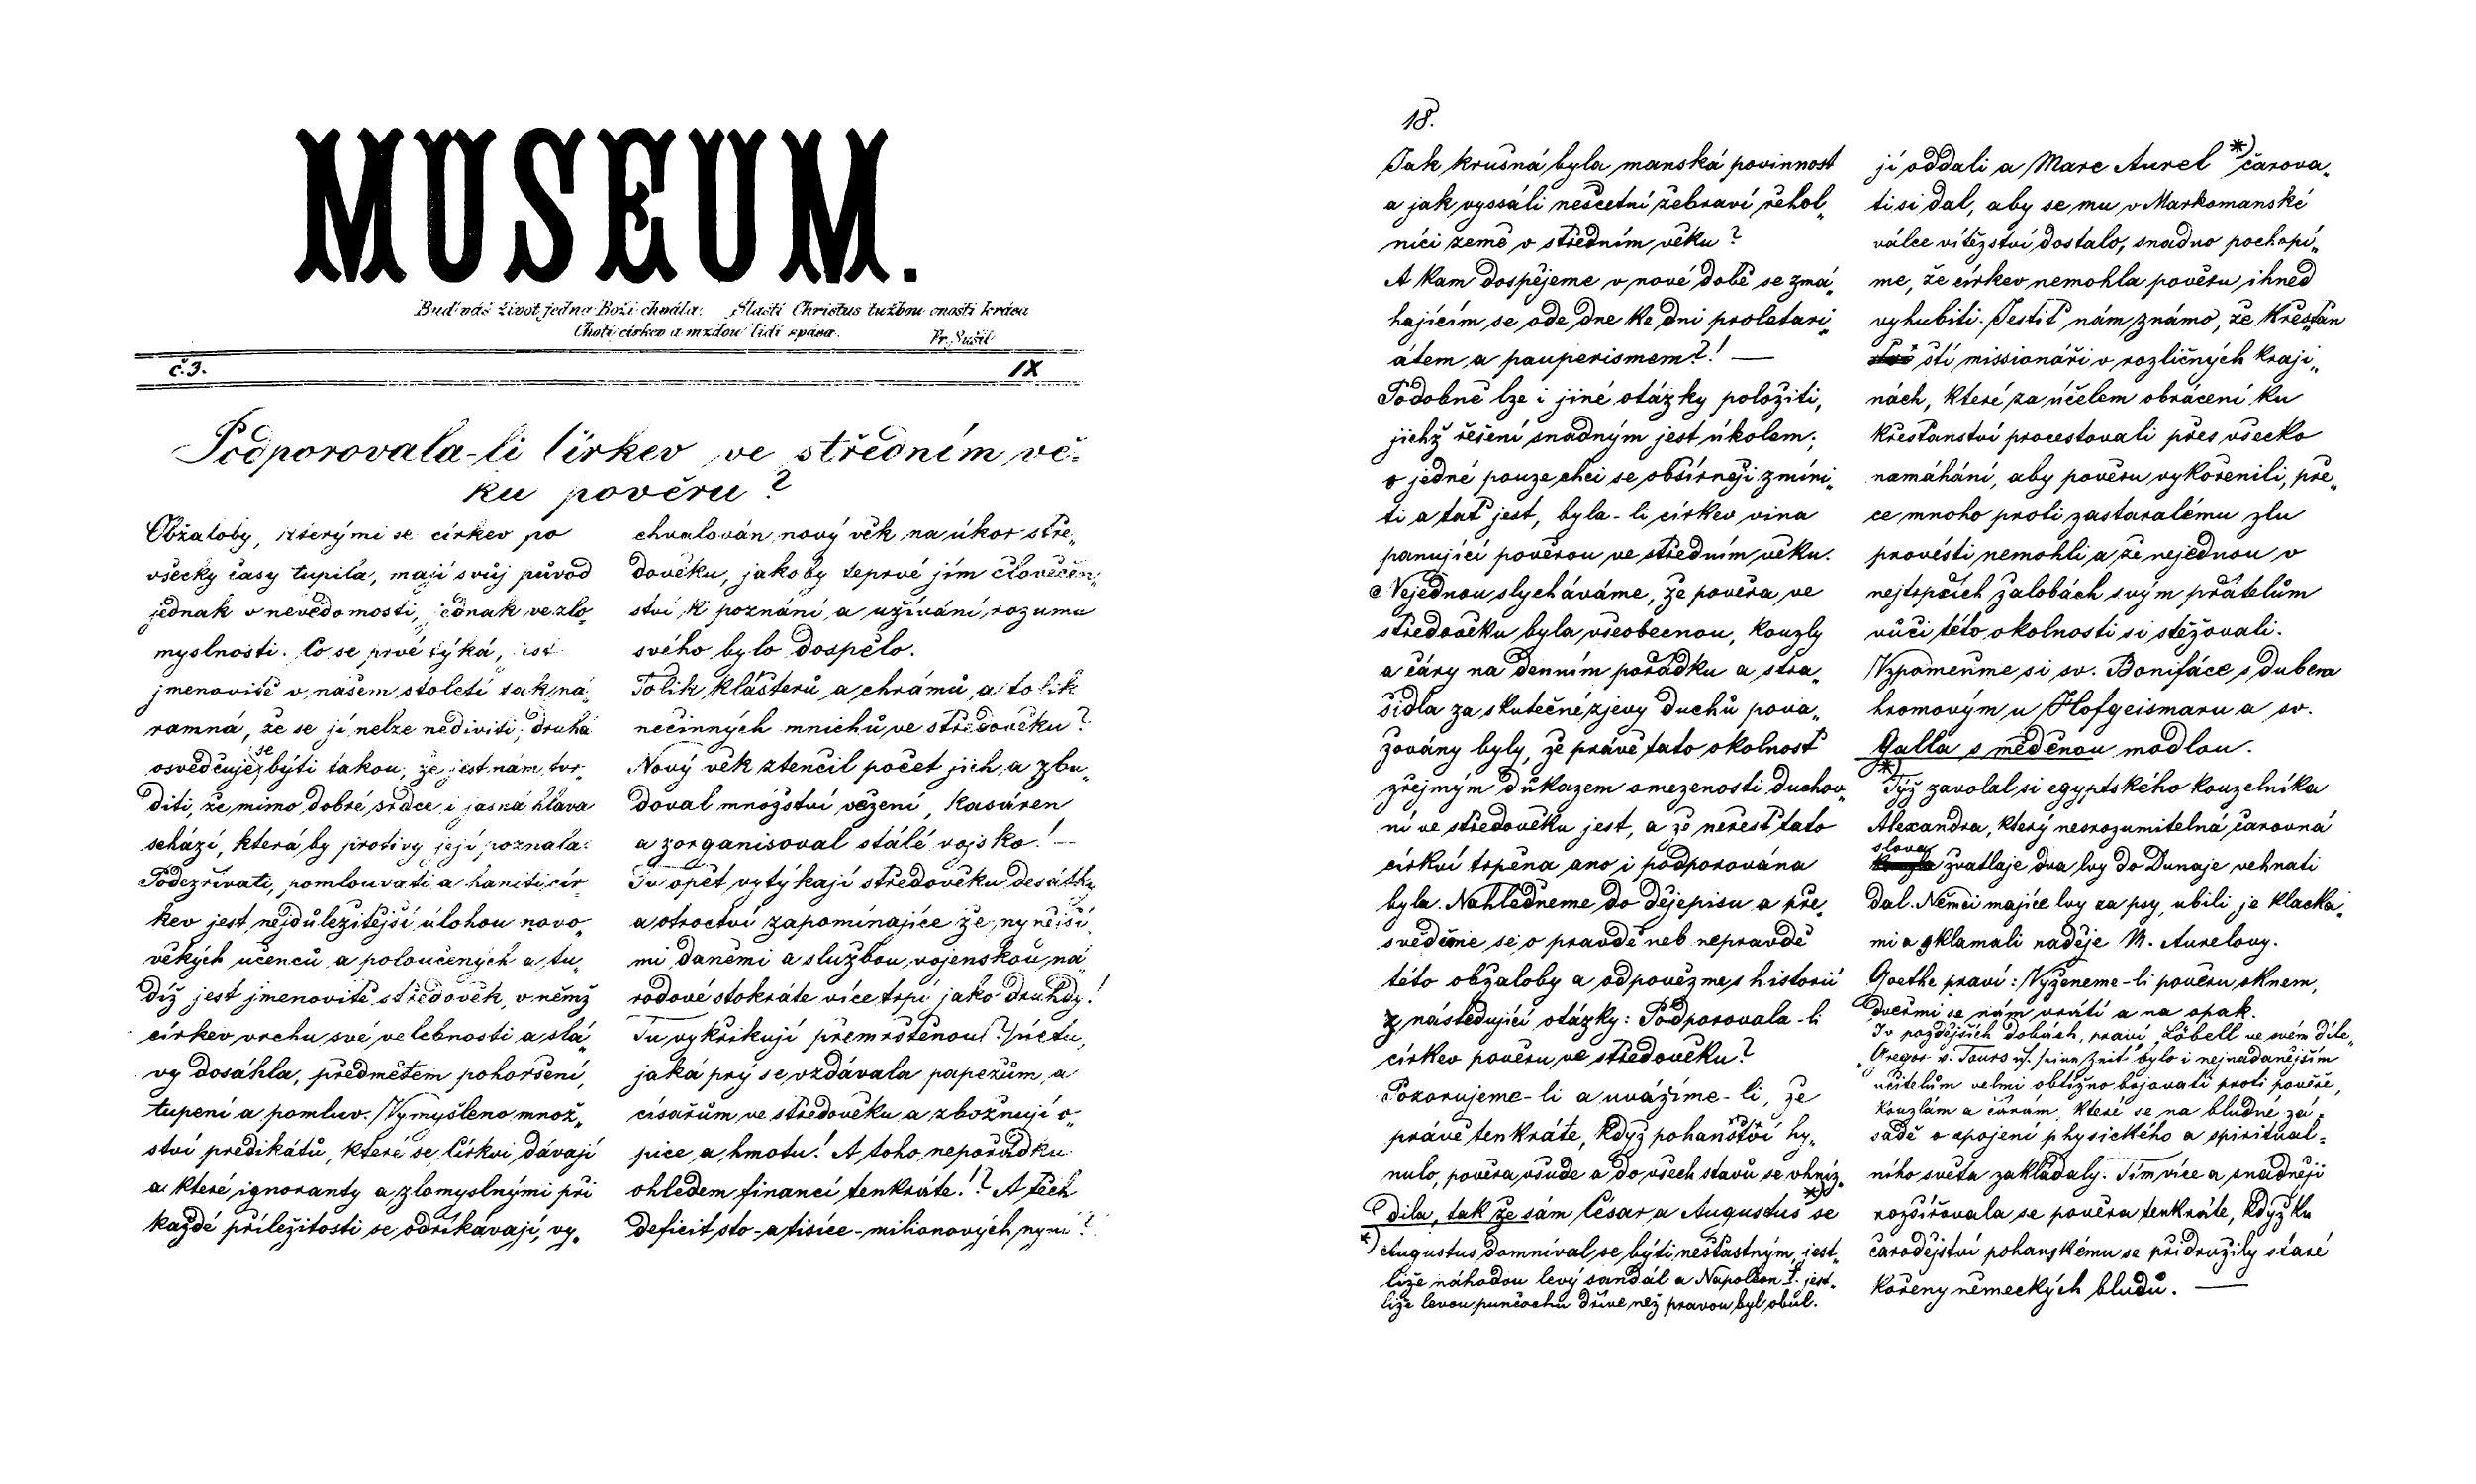 MUSEUM.
Buď náš život jedna Boží chvála: Slastí Christus tužbou cnosti krása
Chotí církev a mzdou lidí spása.
Fr. Sušil
č.3.
IX
Podporovala-li Církev ve středním vě-
ku pověru?
Obžaloby, kterými se církev po
všecky časy tupila, mají svůj původ
jednak v nevědomosti, jednak ve zlo-
myslnosti. Co se prvé týká, jest
jmenovitě v našem století tak ná-
ramná, že se jí nelze nediviti; druhá
osvědčuje se býti takou, že jest nám tvr-
diti, že mimo dobré srdce i jasná hlava
schází, která by protivy její poznala.
Podezřívati, pomlouvati a haniti cír-
kev jest nejdůležitější úlohou novo-
věkých učenců a poloučených a tu-
díž jest jmenovitě středověk, v němž
církev vrchu své velebnosti a slá-
vy dosáhla, předmětem pohoršení,
tupení a pomluv. Vymyšleno množ-
ství predikátů, které se Církvi dávají
a které ignoranty a zlomyslnými při
každé příležitosti se odříkávají, vy-
chvalován nový věk na úkor stře-
dověku, jakoby teprvé jím člověčen-
ství k poznání a užívání rozumu
svého bylo dospělo.
Tolik klášterů a chrámů, a tolik
nečinných mnichů ve středověku?
Nový věk ztenčil počet jich, a zbu-
doval množství vězení, kasáren
a zorganisoval stálé vojsko! —
Tu opět vytýkají středověku desátky
a otroctví zapomínajíce že, nynější-
mi daněmi a službou vojenskou ná-
rodové stokráte více trpí jako druhdy!
Tu vykřikují přemrštěnou(?) úctu,
jaká prý se vzdávala papežům, a
císařům ve středověku a zbožňují o-
pice, a hmotu! A toho nepořádku
ohledem financí tenkráte!? A těch
deficit sto-a tisíce-milionových, nyní?
18.
Jak krušná byla manská povinnost
a jak vyssáli nesčetní žebraví řehol-
níci země v středním věku?
A kam dospějeme v nové době se zmá-
hajícím se ode dne ke dni proletari-
átem a pauperismem?! —
Podobně lze i jiné otázky položiti,
jichž řešení snadným jest úkolem;
o jedné pouze chci se obšírněji zmíni-
ti a tať jest, byla-li církev vina
panující pověrou ve středním věku.
Nejednou slycháváme, že pověra ve
středověku byla všeobecnou, kouzly
a čáry na denním pořádku a stra-
šidla za skutečné zjevy duchů pova-
žovány byly, že právě tato okolnost
zřejmým důkazem omezenosti duchov-
ní ve středověku jest, a že neřest tato
církví trpěna ano i podporována
byla. Nahlédneme do dějepisu a pře-
svědčme se o pravdě neb nepravdě
této obžaloby a odpovězme s historií
z následující otázky: Podporovala-li
církev pověru ve středověku?
Pozorujeme-li a uvážíme-li, že
právě tenkráte, když pohanství hy-
nulo, pověra všude a do všech stavů se vhníz-
dila, tak že sám César a Augustus *) se
*) Augustus domníval se býti nešťastným, jest-
liže náhodou levý sandál a Napoleon I. jest-
liže levou punčochu dříve než pravou byl obul.
jí oddali a Marc Aurel *) čarova-
ti si dal, aby se mu v Markomanské
válce vítězství dostalo, snadno pochopí-
me, že církev nemohla pověru ihned
vyhubiti. Jestiť nám známo, že křesťan
ští missionáři v rozličných kraji-
nách, které za účelem obrácení ku
křesťanství procestovali přes všecko
namáhání, aby pověru vykořenili, pře-
ce mnoho proti zastaralému zlu
provésti nemohli a že nejednou v
nejtrpčích žalobách svým přátelům
vůči této okolnosti si stěžovali.
Vzpomeňme si sv. Bonifáce s dubem
hromovým u Hofgeismaru a sv.
Galla s měděnou modlou.
*) Týž zavolal si egyptského kouzelníka
Alexandra, který nesrozumitelná čarovná
slova žvatlaje dva lvy do Dunaje vehnati
dal. Němci majíce lvy za psy, ubili je klacka-
mi a zklamali naděje M. Aurelovy.
Goethe praví: Vyženeme-li pověru oknem,
dveřmi se nám vrátí a na opak.
I v pozdějších dobách, praví Löbell ve svém díle
„Gregor v. Tours u/. seine Zeit bylo i nejnadanějším
učitelům velmi obtížno bojovati proti pověře,
kouzlám a čárám, které se na bludné zá-
sadě o spojení physického a spiritual-
ního světa zakládaly. Tím více a snadněji
rozšiřovala se pověra tenkráte, když ku
čarodějství pohanskému se přidružily staré
kořeny německých bludů. —